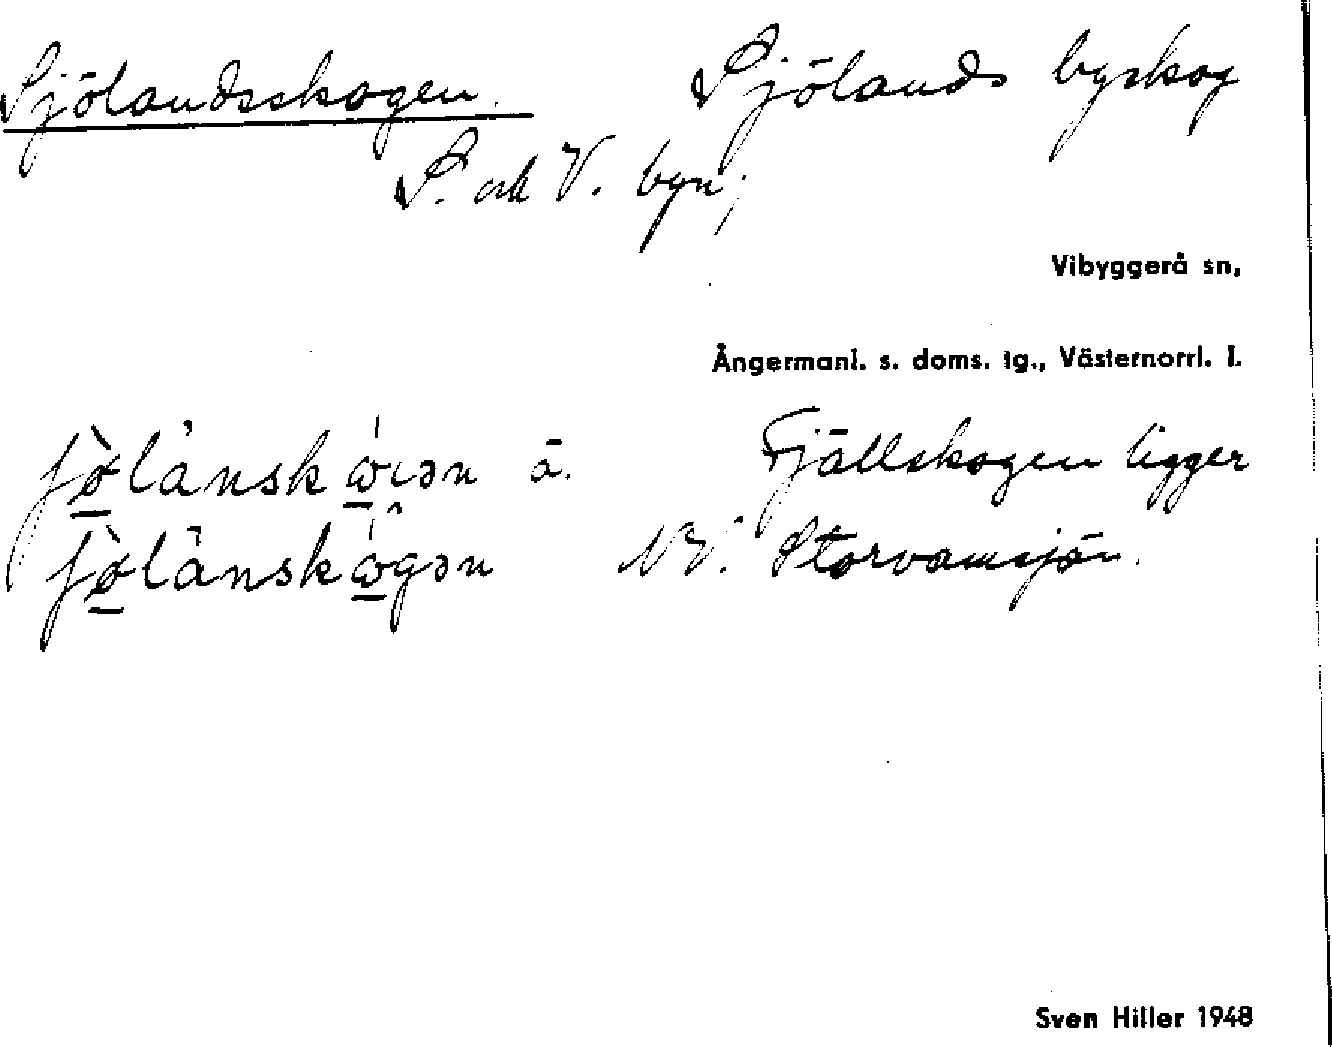 Sjölandsskogen. Sjölands byskog
S. och V. byn;
Vibyggerå sn,
Ångermanl. s. doms. tg., Västernorrl. l.
ʃø̀lànskɷ́ıən ä. Fjällskogen ligger
ʃø̀länskɷ́gən NV. Storvamsjön.
Sven Hiller 1948